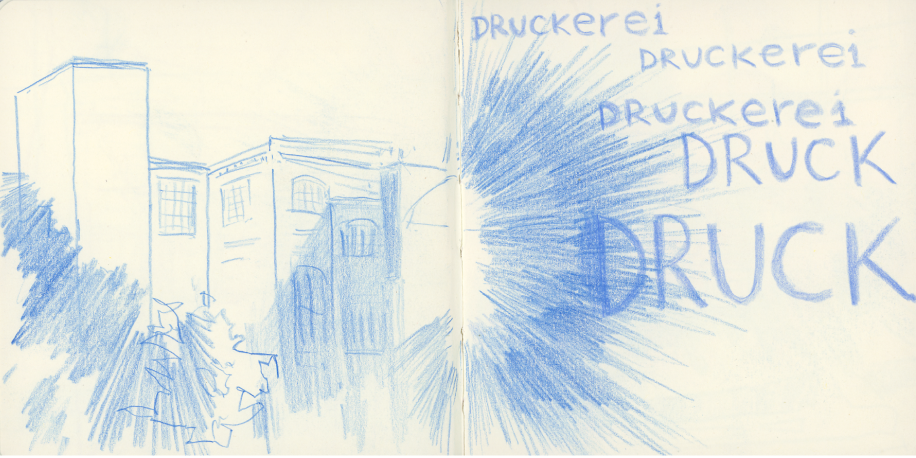 DRUCKerei
DRUCKerei
DRUCKerei
DRUCK
DRUCK